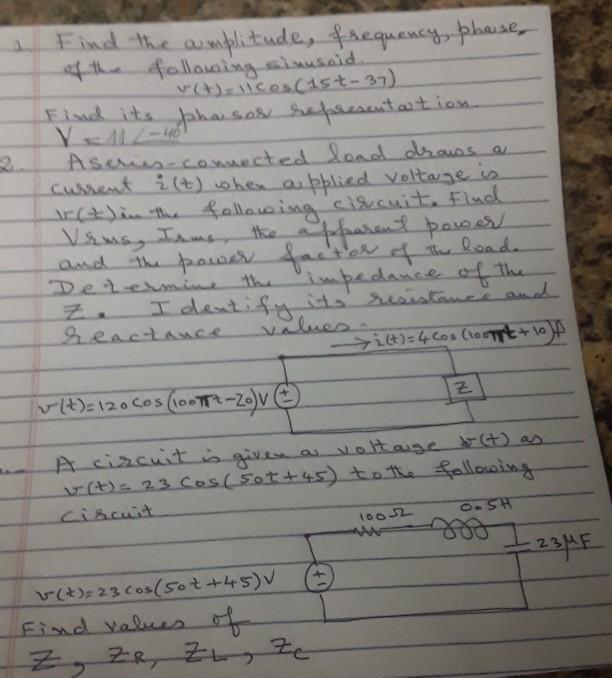 1. Find the amplitude, frequency, phase,
of the following sinusoid.
v(t)=11cos(15t-37)
Find its phasor representation.
V = 11∠-40°
2. A series-connected load draws a
current i(t) when applied voltage is
v(t) in the following circuit. Find
Vrms, Irms, the apparent power
and the power factor of the load.
Determine the impedance of the
Z. Identify its resistance and
reactance values.
→ i(t)=4cos(100πt+10)A
v(t)=120cos(100πt-20)V
Z
A circuit is given a voltage v(t) as
v(t)= 23 cos(50t+45) to the following
circuit.
100Ω 0.5H
23μF
v(t)=23cos(50t+45)V
Find values of
Z, ZR, ZL, Zc